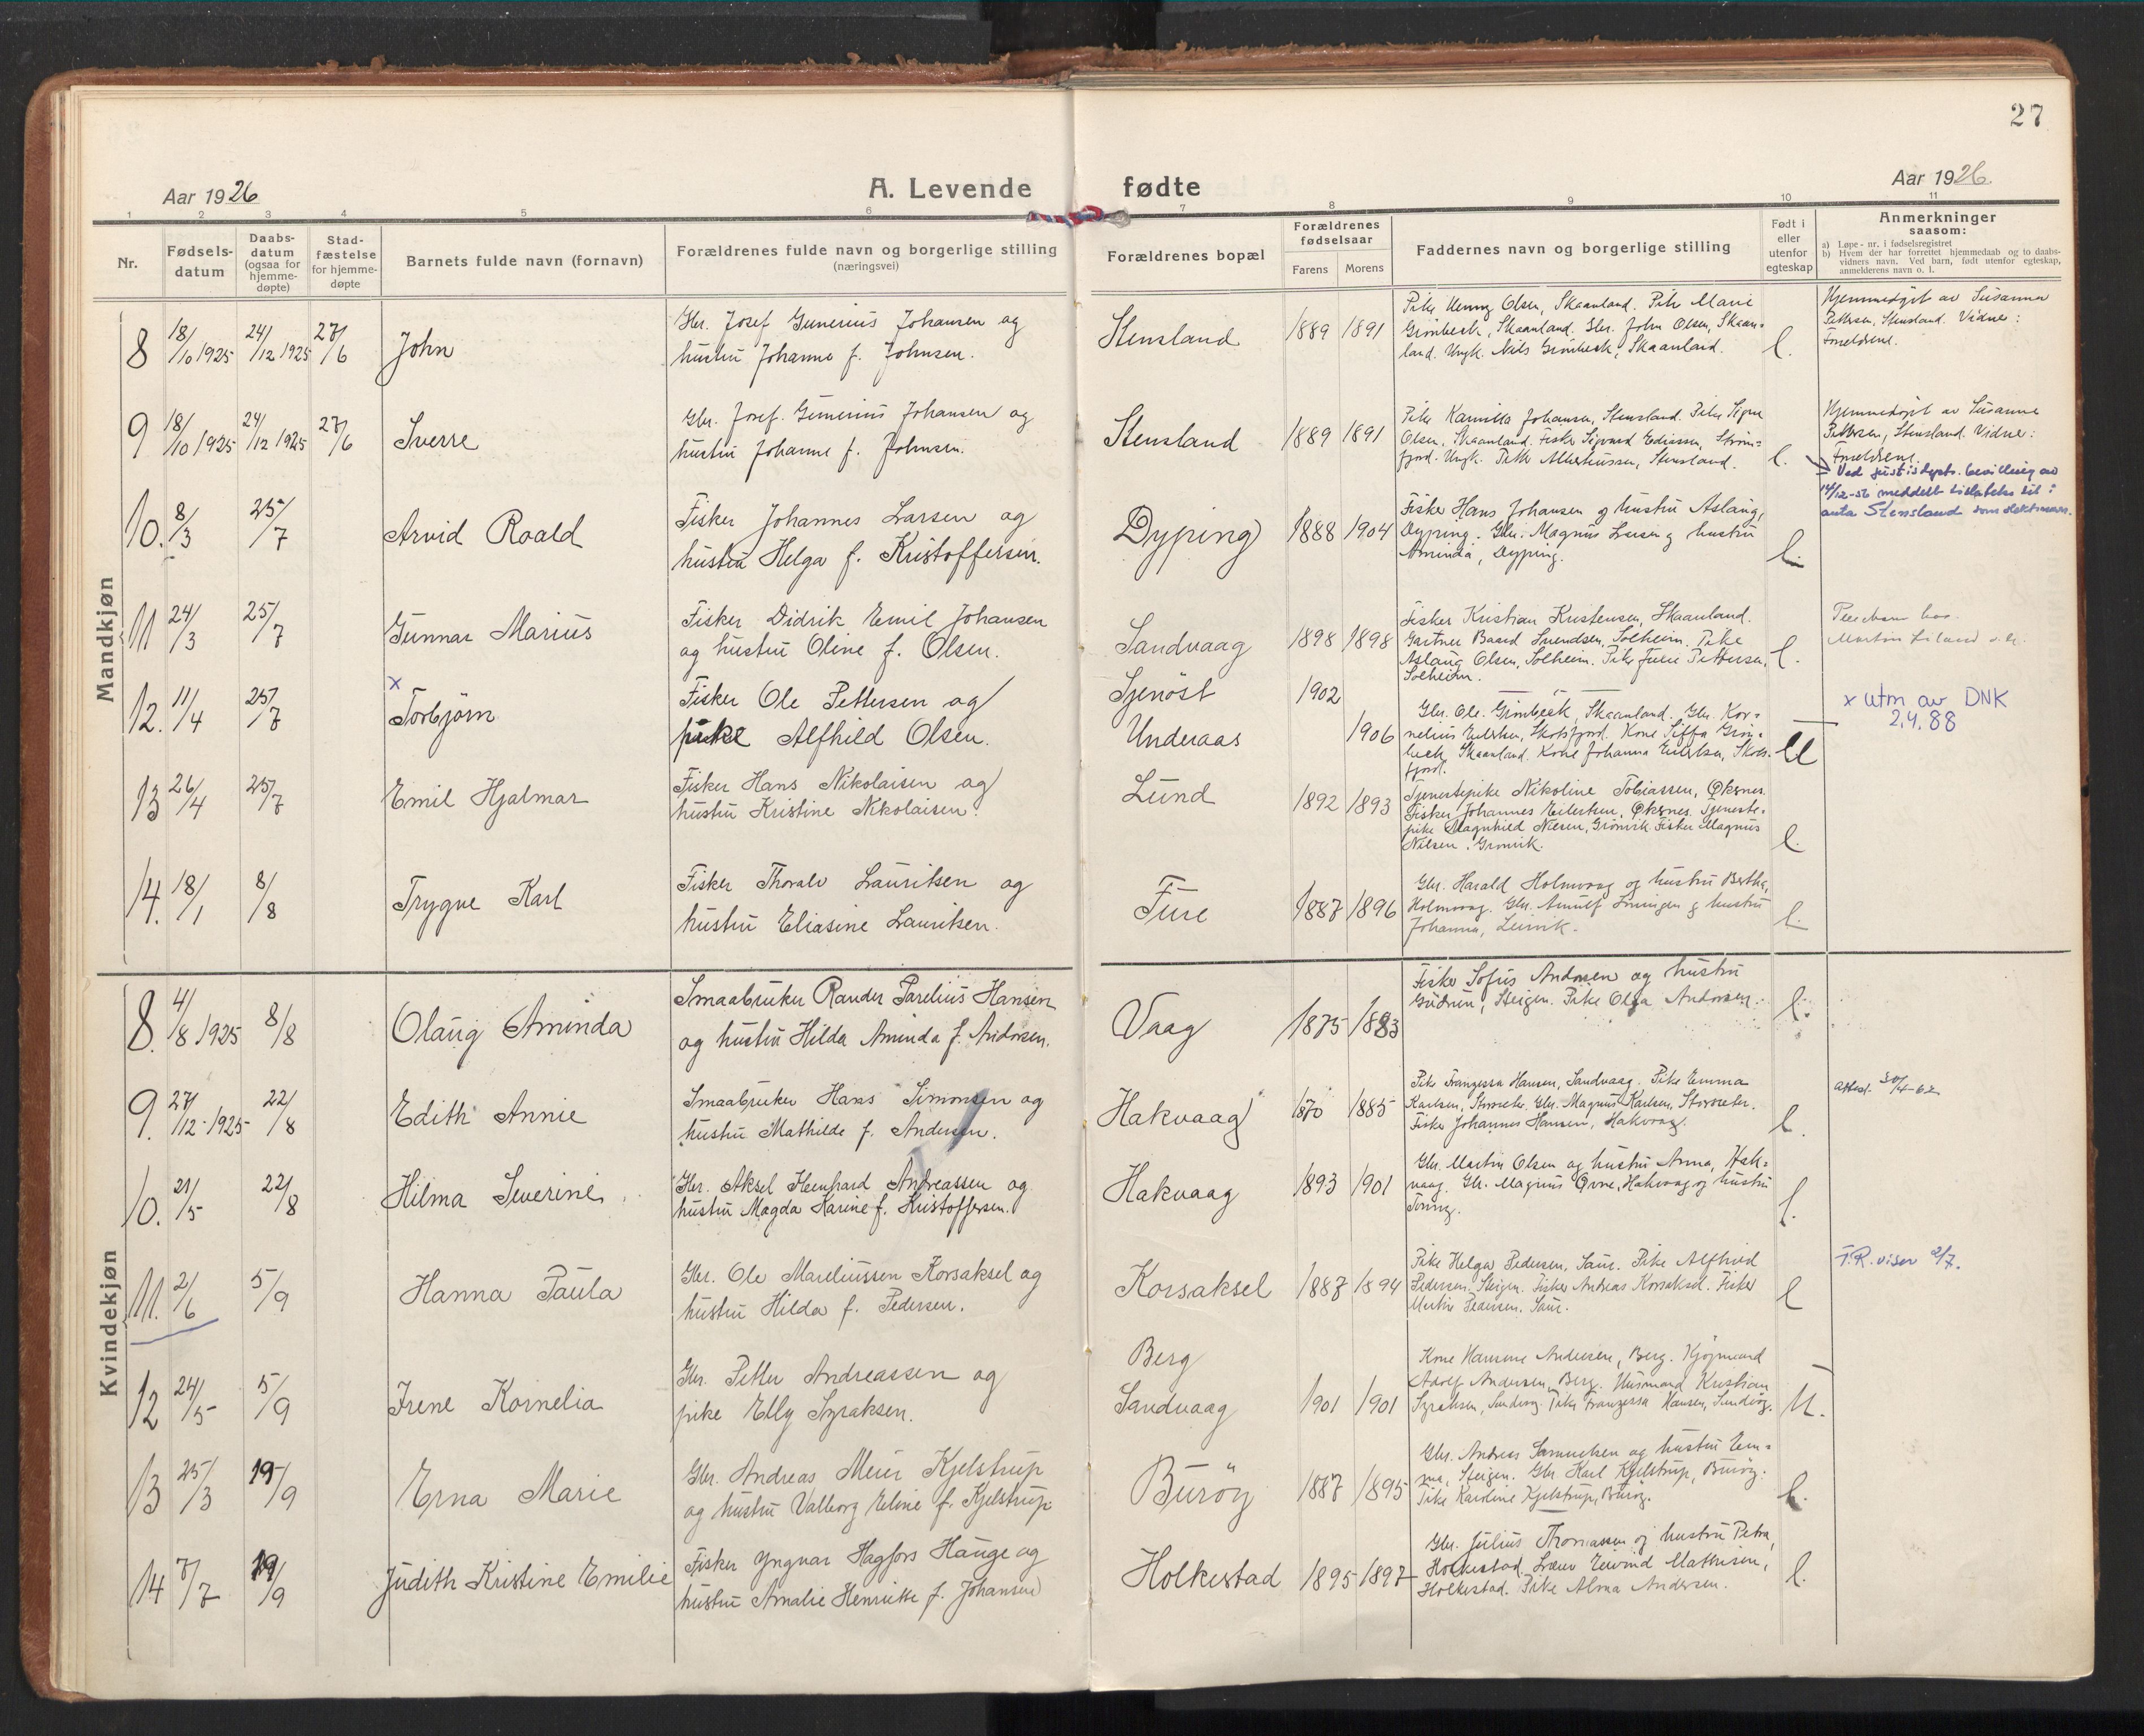 27
Aar 1926
A. Levende fødte
Aar 1926.
1 2 3 4 5 6 7 8 9 10 11
Nr.
Fødsels-
datum
Daabs-
datum
(ogsaa for
hjemme-
døpte)
Stad-
fæstelse
for hjemme-
døpte
Barnets fulde navn (fornavn)
Forældrenes fulde navn og borgerlige stilling
(næringsvei)
Forældrenes bopæl
Forældrenes
fødselsaar
Farens Morens
Faddernes navn og borgerlige stilling
Født i
eller
utenfor
egteskap
Anmerkninger
saasom:
a) Løpe-nr. i fødselsregistret
b) Hvem der har forrettet hjemmedaab og to daabs-
vidners navn. Ved barn, født utenfor egteskap,
anmelderens navn o. l.
Mandkjøn
8 18/10 1925 24/12 1925 27/6 John
Gbr. Josef Gunerius Johansen og
hustru Johanne f. Johnsen.
Stensland 1889 1891
Pike Henny Olsen, Skaanland. Pike Marie
Grönbeck, Skaanland. Gbr. John Olsen, Skaan=
land. Ungk. Nils Grönbeck, Skaanland.
l.
Hjemmedöpt av Susanna
Pettersen, Stensland. Vidner:
Foreldrene.
9 18/10 1925 24/12 1925 27/6 Sverre
Gbr. Josef Gunerius Johansen og
hustru Johanne f. Johnsen.
Stensland 1889 1891
Pike Kamilla Johansen, Stensland. Pike Signe
Olsen, Skaanland. Fisker Sigvard Edvissen, Ström=
fjord. Ungk. Petter Albertiussen, Stensland.
l.
Hjemmedöpt av Susanna
Pettersen, Stensland. Vidner:
Foreldrene.
Ved justisdepts. bevilling av
14/12-56 meddelt tillatelse til å
anta Stensland som slektsnavn.
10. 8/3 25/7 Arvid Roald
Fisker Johannes Larsen og
hustru Helga f. Kristoffersen.
Dyping 1888 1904
Fisker Hans Johansen og hustru Aslaug,
Dyping. Gbr. Magnus Larsen og hustru
Aminda, Dyping.
l.
11 24/3 25/7 Gunnar Marius
Fisker Didrik Emil Johansen
og hustru Oline f. Olsen.
Sandvaag 1898 1898
Fisker Kristian Kristensen, Skaanland.
Gartner Baard Svendsen, Solheim. Pike
Aslaug Olsen, Solheim. Pike Julie Pettersen,
Solheim.
l.
Pleiebarn hos
Martin
12. 11/4 25/7 x Torbjörn
Fisker Ole Pettersen og
pike Alfhild Olsen.
Sjenöst 1902
Underaas 1906
Gbr. Ole Grönbeck, Skaanland. Gbr. Kor=
nelius Eilertsen, Skotsfjord. Kone Siffa Grön=
beck, Skaanland. Kone Johanna Eilertsen, Skots=
fjord.
U
x utm av DNK
2.4.88
13 26/4 25/7 Emil Hjalmar
Fisker Hans Nikolaisen og
hustru Kristine Nikolaisen.
Lund 1892 1893
Tjenestepike Nikoline Tobiassen, Öksnes.
Fisker Johannes Eilertsen, Öksnes. Tjeneste=
pike Magnhild Nilsen, Grönvik. Fisker Magnus
Nilsen. Grönvik.
l.
14. 18/1 8/8 Trygve Karl
Fisker Thoralv Lauritsen og
hustru Eliasine Lauritsen.
Fure 1887 1896
Gbr. Harald Holmvaag og hustru Bertha,
Holmvaag. Gbr. Arnulf og hustru
Johanna, Leirvik.
l.
Kvindekjøn
8. 4/8 1925 8/8 Olaug Aminda
Smaabruker Rander Parelius Hansen
og hustru Hilda Aminda f. Andorsen.
Vaag 1875 1883
Fisker Sofus Andorsen og hustru
Gudrun, Steigen. Pike Olga Andorsen.
l.
9. 27/12-1925 22/8 Edith Annie
Smaabruker Hans Simonsen og
hustru Mathilde f. Andersen.
Hakvaag 1870 1885
Pike Franzessa Hansen, Sandvaag. Pike Emma
Karlsen, Storseter. Gbr. Magnus Karlsen, Storseter.
Fisker Johannes Hansen, Hakvaag.
l.
Attest. 30/4-62
10. 21/5 22/8 Hilma Severine
Gbr. Aksel Henhard Andreassen og
hustru Magda Karine f. Kristoffersen.
Hakvaag 1893 1901
Gbr. Martin Olsen og hustru Anna, Hak=
vaag. Gbr. Magnus Övre, Hakvaag og hustru
Jenny.
l.
11. 2/6 5/9 Hanna Paula
Gbr. Ole Mareliussen Korsaksel og
hustru Hilda f. Pedersen.
Korsaksel 1887 1894
Pike Helga Pedersen, Saur. Pike Alfhild
Pedersen, Steigen. Fisker Andreas Korsaksel. Fisker
Martin Pedersen, Saur.
l
F.R. viser 2/7.
12 24/5 5/9 Irene Kornelia
Gbr. Petter Andreassen og
pike Elly Syraksen.
Berg
Sandvaag 1901 1901
Kone Hansine Andersen, Berg. Kjöpmand
Adolf Andersen, Berg. Husmand Kristian
Syraksen, Sandvaag. Pike Franzessa Hansen, Sandvåg.
U.
13 25/3 19/9 Erna Marie
Gbr. Andreas Meier Kjelstrup
og hustru Valborg Eline f. Kjelstrup.
Buröy 1887 1895
Gbr. Andreas Samuelsen og hustru Em=
ma, Steigen. Gbr Karl Kjelstrup, Buröy.
Pike Karoline Kjelstrup, Buröy.
l.
14 7/7 19/9 Judith Kristine Emilie
Fisker Yngvar Hagfors Hauge og
hustru Amalie Henrikke f. Johansen
Holkestad 1895 1897
Gbr. Julius Thomassen og hustru Petra,
Holkestad. Lærer Eivind Mathisen,
Holkestad. Pike Alma Andersen.
l.